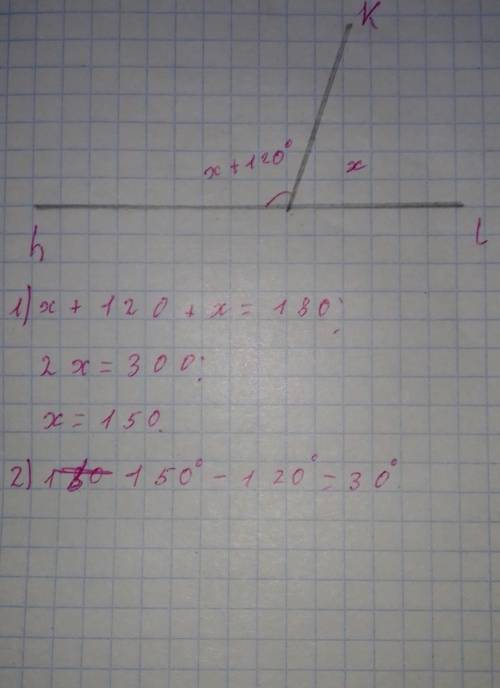 K
x + 120°
x
h
l
1) x + 120 + x = 180;
2x = 300;
x = 150.
2) 150° - 120° = 30°